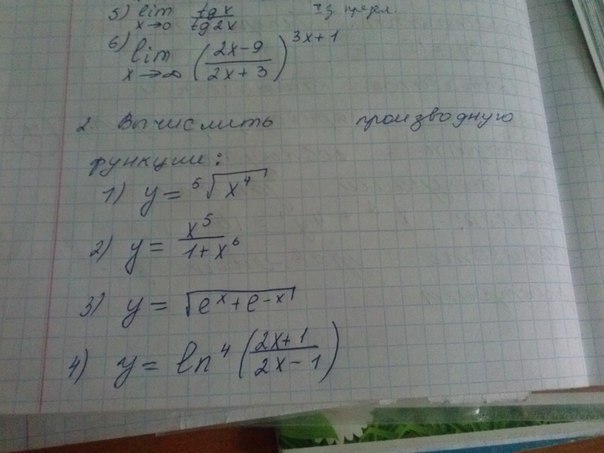 5) lim x→0 tg x / tg 2x
6) lim x→∞ ((2x-9)/(2x+3))^(3x+1)
2. Вычислить производную
функции:
1) y = ⁵√(x⁴)
2) y = x⁵/(1+x⁶)
3) y = √(eˣ+e⁻ˣ)
4) y = ln⁴((2x+1)/(2x-1))